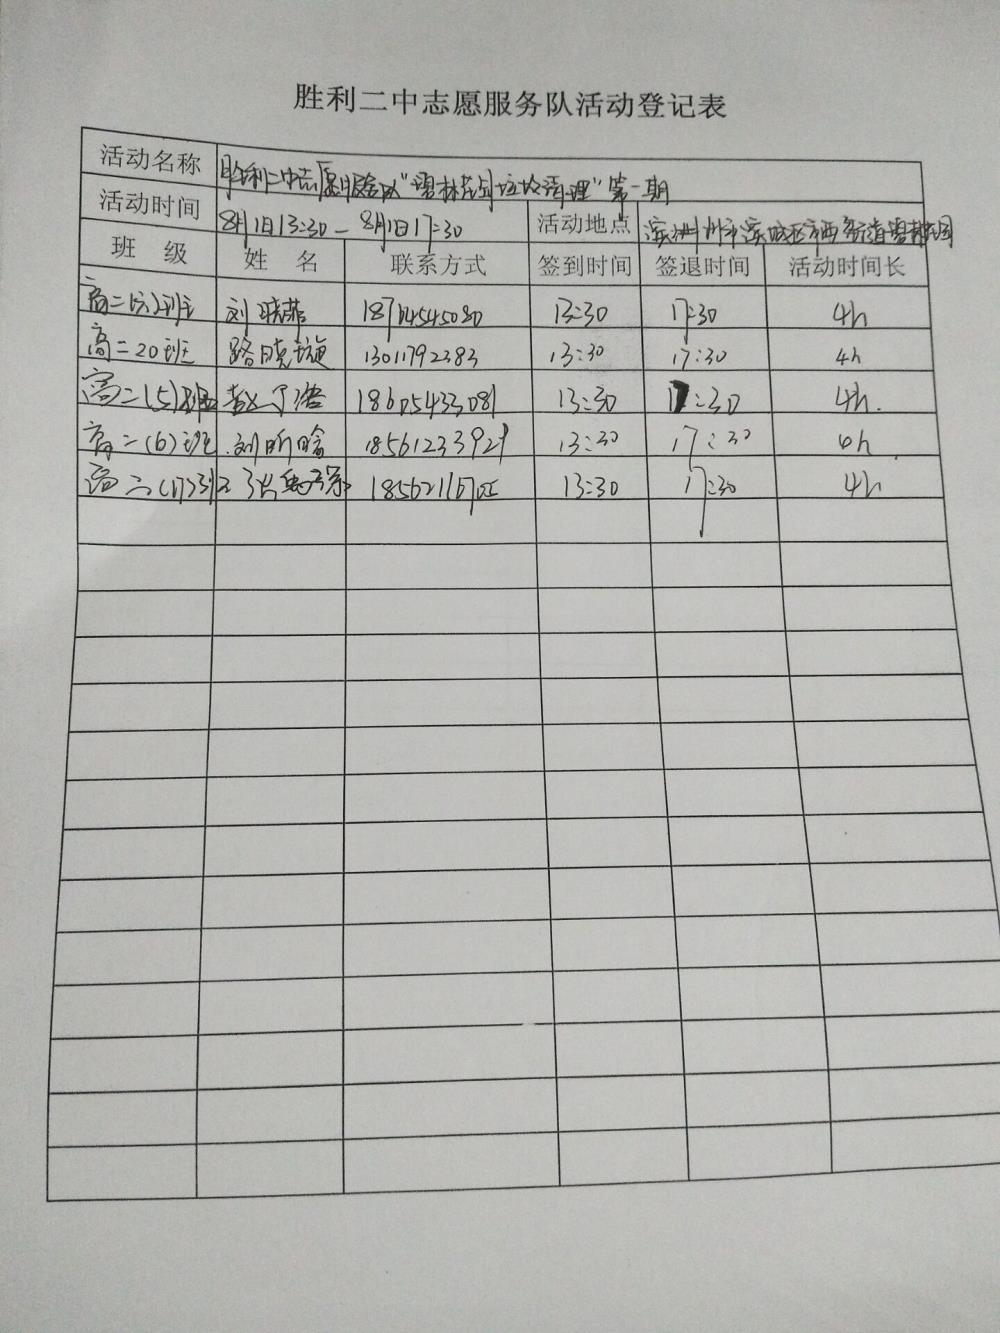 胜利二中志愿服务队活动登记表
活动名称 胜利二中志愿服务队"碧林花园垃圾清理"第一期
活动时间 8月1日13:30-8月1日17:30 活动地点 滨州市滨城区市西街道碧林花园
班 级 姓 名 联系方式 签到时间 签退时间 活动时间长
高二 班 刘晓菲 13:30 17:30 4h
高二20班 路晓璇 13011792383 13:30 17:30 4h
高二(5)班 13:30 17:30 4h.
高二(6)班 刘昕晗 18561233929 13:30 17:30
高二 13:30 17:30 4h